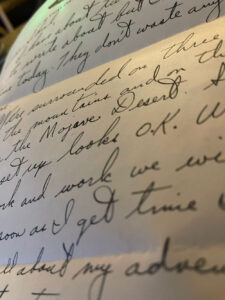 had about the
write about but
today. They don't waste any
surrounded on three
the mountains and on the
the Mojave Desert. S
set up looks O.K. W
and work we wi
soon as I get time
all about my adven